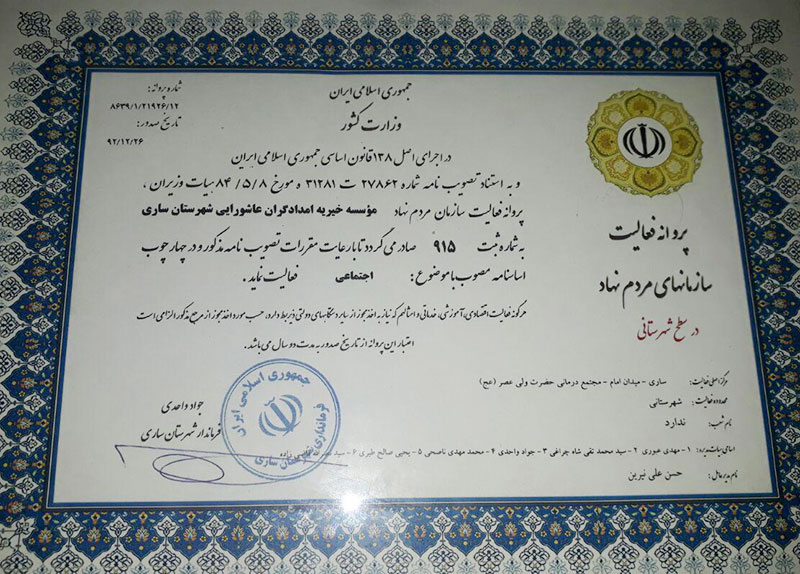 جمهوری اسلامی ایران
وزارت کشور
شماره پروانه:
۸۶۳۹/۱/۲۱۹۲۶/۱۲
تاریخ صدور:
۹۲/۱۲/۲۶
در اجرای اصل ۱۳۸ قانون اساسی جمهوری اسلامی ایران
و به استناد تصویب نامه شماره ۲۷۸۶۲ ت ۳۱۲۸۱ ه مورخ ۸۴/۵/۸ هیات وزیران ،
پروانه فعالیت سازمان مردم نهاد مؤسسه خیریه امدادگران عاشورایی شهرستان ساری
به شماره ثبت ۹۱۵ صادر می گردد تا با رعایت مقررات تصویب نامه مذکور و در چهارچوب
اساسنامه مصوب با موضوع : اجتماعی فعالیت نماید .
هرگونه فعالیت اقتصادی، آموزشی، خدماتی و امثالهم که نیاز به اخذ مجوز از سایر دستگاههای دولتی ذیربط دارد، حسب مورد اخذ مجوز از مرجع مذکور الزامی است
اعتبار این پروانه از تاریخ صدور به مدت دو سال می باشد.
جواد واحدی
فرماندار شهرستان ساری
جمهوری اسلامی ایران
فرمانداری شهرستان ساری
پروانه فعالیت
سازمانهای مردم نهاد
در سطح شهرستانی
مرکز اصلی فعالیت: ساری - میدان امام - مجتمع درمانی حضرت ولی عصر (عج)
محدوده فعالیت: شهرستانی
نام شعب: ندارد
اسامی هیات مدیره: ۱ - مهدی عبوری ۲ - سید محمد تقی شاه چراغی ۳ - جواد واحدی ۴ - محمد مهدی ناصحی ۵ - یحیی صالح طبری ۶ - سید
نام مدیرعامل: حسن علی نیرین